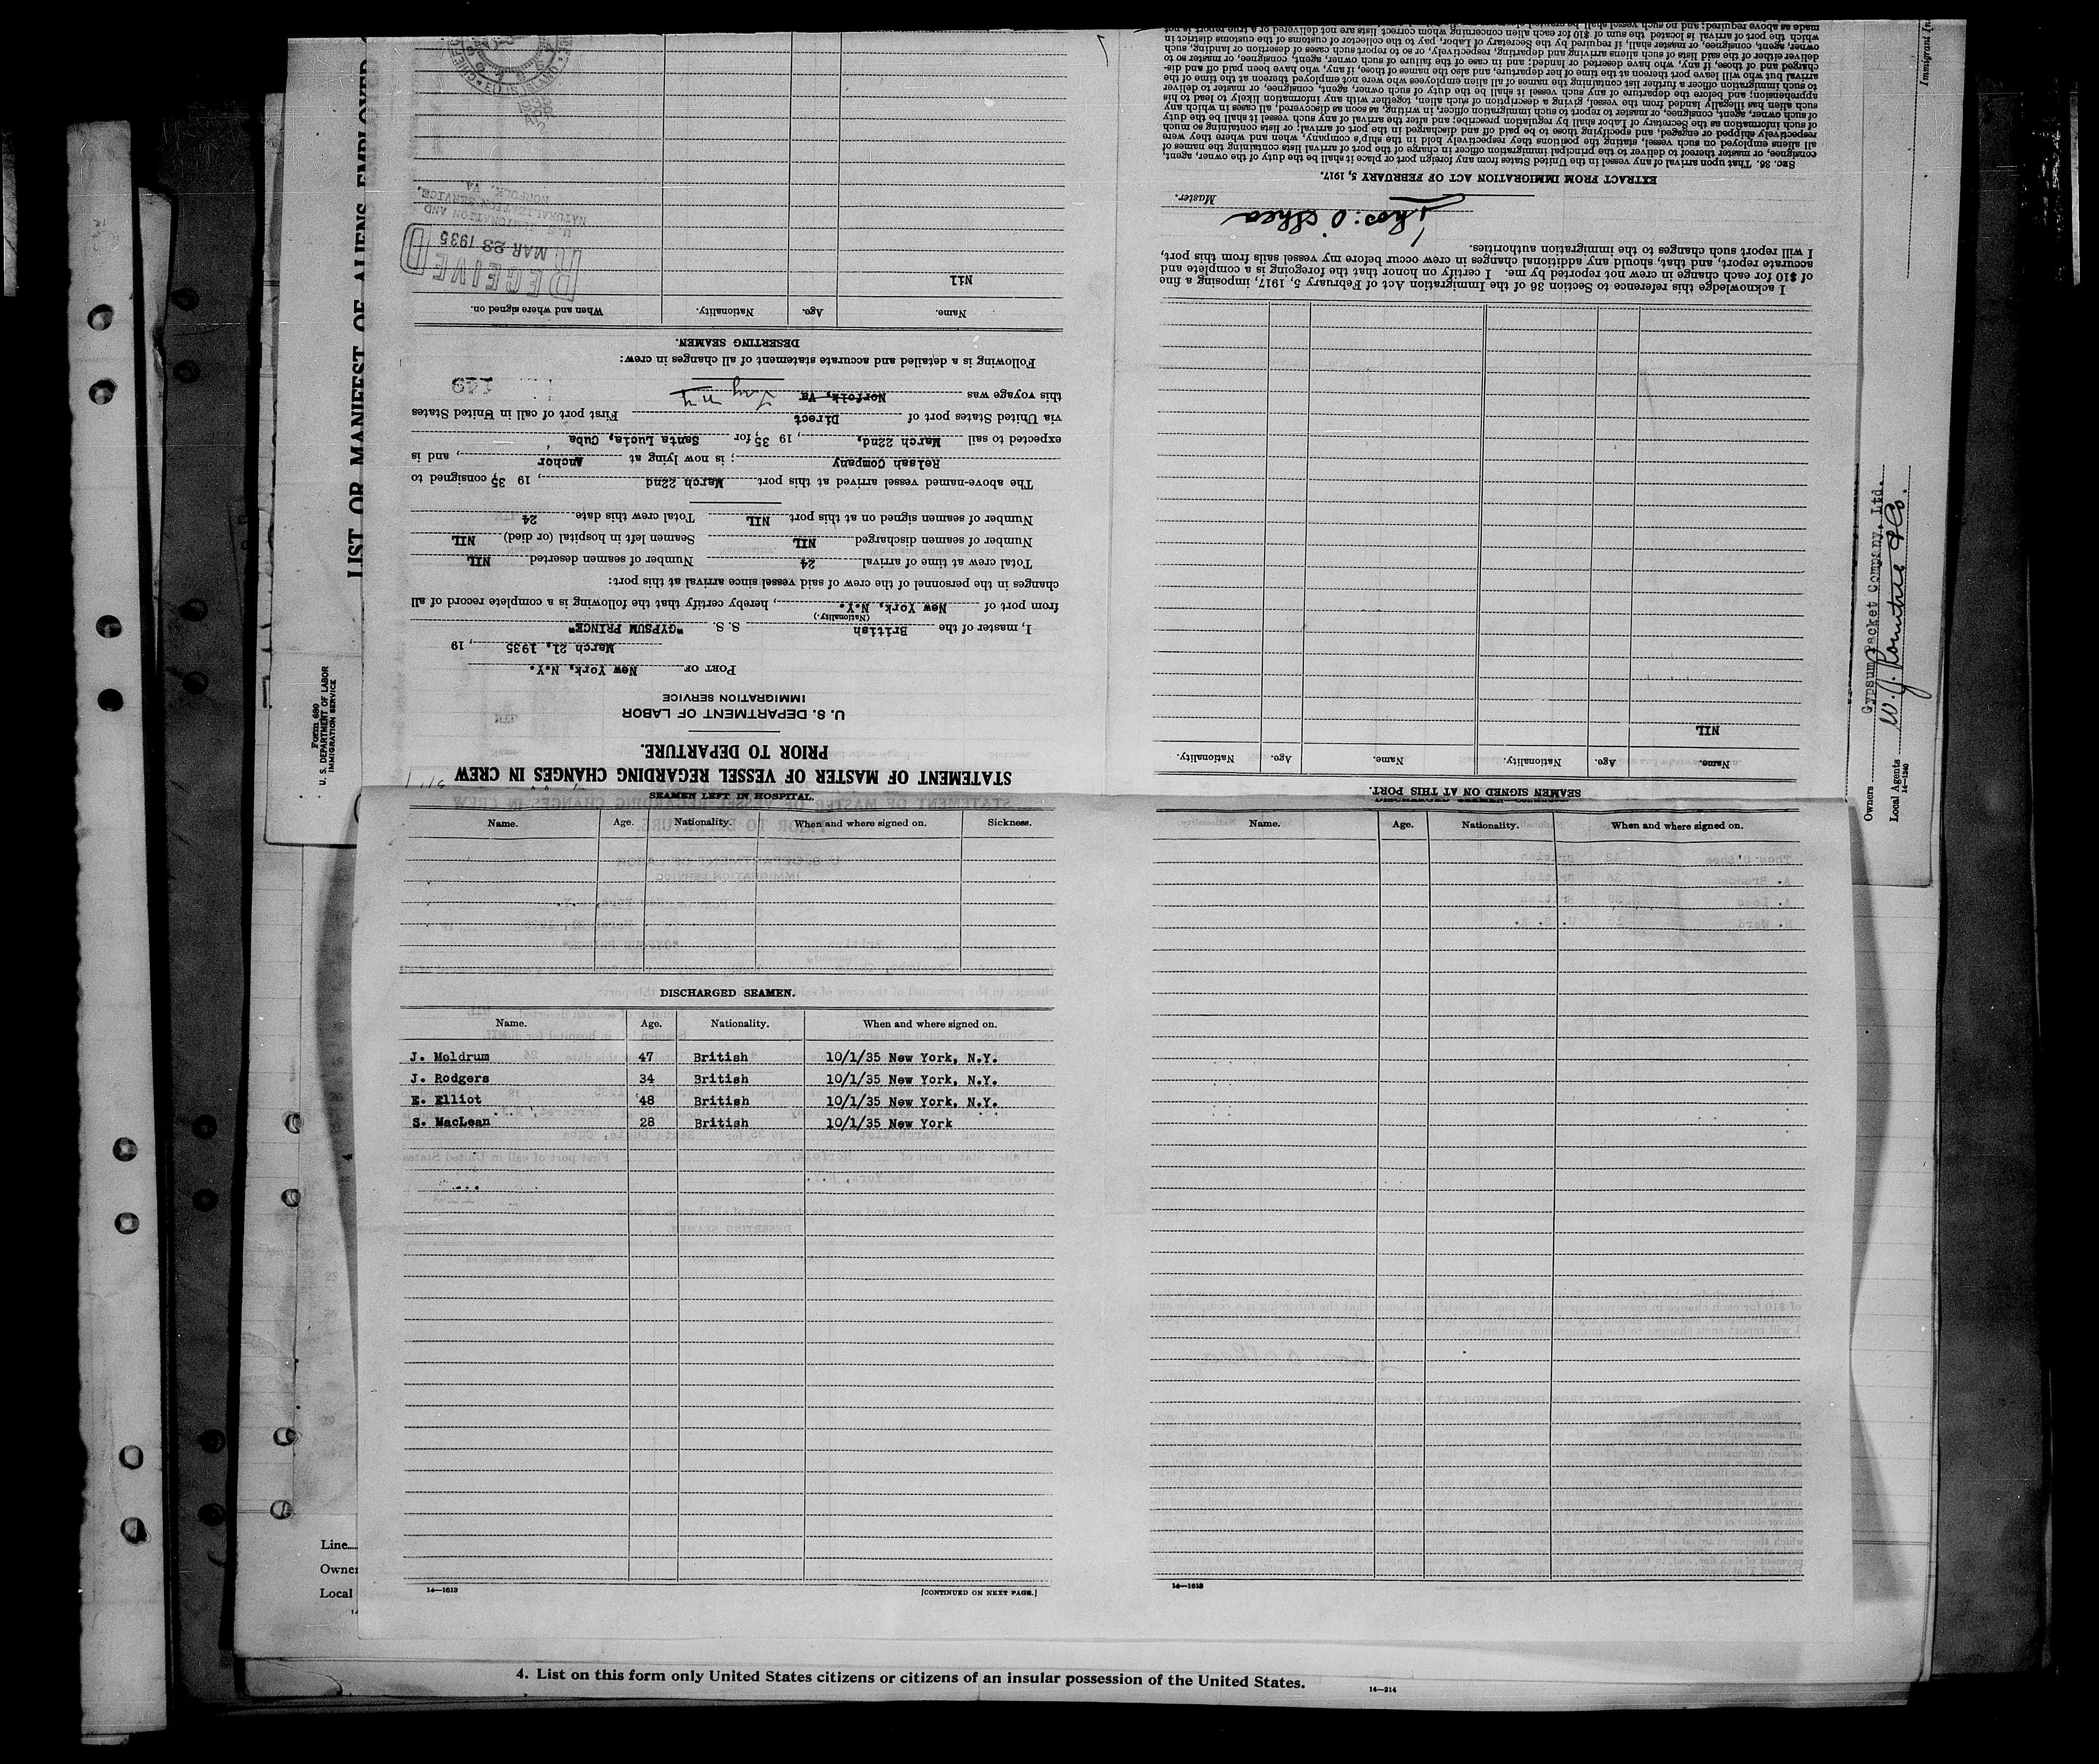 STATEMENT OF MASTER OF VESSEL REGARDING CHANGES IN CREW
PRIOR TO DEPARTURE.
U. S. DEPARTMENT OF LABOR
IMMIGRATION SERVICE
PORT OF New York, N.Y.
March 21, 1935, 19
I, master of the British S. S. "GYPSUM PRINCE"
(Nationality.)
from port of New York, N.Y., hereby certify that the following is a complete record of all
changes in the personnel of the crew of said vessel since arrival at this port:
Total crew at time of arrival 24 Number of seamen deserted NIL
Number of seamen discharged NIL Seamen left in hospital (or died) NIL
Number of seamen signed on at this port NIL Total crew this date 24
The above-named vessel arrived at this port March 22nd, 19 35 consigned to
Relsah Company; is now lying at Anchor, and is
expected to sail March 22nd, 19 35, for Santa Lucia, Cuba
via United States port of Direct First port of call in United States
this voyage was Norfolk, Va N.Y.
149
Following is a detailed and accurate statement of all changes in crew:
DESERTING SEAMEN.
Name. Age. Nationality. When and where signed on.
Nil
RECEIVED
MAR 23 1935
U.S. IMMIGRATION AND
NATURALIZATION SERVICE,
NORFOLK, VA.
SEAMEN SIGNED ON AT THIS PORT.
Name. Age. Nationality. Name. Age. Nationality.
NIL
I acknowledge this reference to Section 36 of the Immigration Act of February 5, 1917, imposing a fine
of $10 for each change in crew not reported by me. I certify on honor that the foregoing is a complete and
accurate report, and that, should any additional changes in crew occur before my vessel sails from this port,
I will report such changes to the immigration authorities.
Thos: O'Shea
Master.
EXTRACT FROM IMMIGRATION ACT OF FEBRUARY 5, 1917.
SEC. 36. That upon arrival of any vessel in the United States from any foreign port or place it shall be the duty of the owner, agent,
consignee, or master thereof to deliver to the principal immigration officer in charge of the port of arrival lists containing the names of
all aliens employed on such vessel, stating the positions they respectively hold in the ship's company, when and where they were
respectively shipped or engaged, and specifying those to be paid off and discharged in the port of arrival; or lists containing so much
of such information as the Secretary of Labor shall by regulation prescribe; and after the arrival of any such vessel it shall be the duty
of such owner, agent, consignee, or master to report to such immigration officer, in writing, as soon as discovered, all cases in which any
such alien has illegally landed from the vessel, giving a description of such alien, together with any information likely to lead to his
apprehension; and before the departure of any such vessel it shall be the duty of such owner, agent, consignee, or master to deliver
to such immigration officer a further list containing the names of all alien employees who were not employed thereon at the time of the
arrival but who will leave port thereon at the time of her departure, and also the names of those, if any, who have been paid off and dis-
charged and of those, if any, who have deserted or landed; and in case of the failure of such owner, agent, consignee, or master so to
deliver either of the said lists of such aliens arriving and departing, respectively, or so to report such cases of desertion or landing, such
owner, agent, consignee, or master, shall, if required by the Secretary of Labor, pay to the collector of customs of the customs district in
which the port of arrival is located the sum of $10 for each alien concerning whom correct lists are not delivered or a true report is not
LIST OR MANIFEST OF ALIENS EMPLOYED
Form 680
U. S. DEPARTMENT OF LABOR
IMMIGRATION SERVICE
Owners Gypsum Packet Company, Ltd.
Local Agents
14—1240
Immigrant
SEAMEN LEFT IN HOSPITAL.
Name. Age. Nationality. When and where signed on. Sickness.
DISCHARGED SEAMEN.
Name. Age. Nationality. When and where signed on.
J. Moldrum 47 British 10/1/35 New York, N.Y.
J. Rodgers 34 British 10/1/35 New York, N.Y.
E. Elliot 48 British 10/1/35 New York, N.Y.
S. MacLean 28 British 10/1/35 New York
14—1613 [CONTINUED ON NEXT PAGE.]
Name. Age. Nationality. When and where signed on.
14—1613
Line
Owner
Local
4. List on this form only United States citizens or citizens of an insular possession of the United States.
14—314